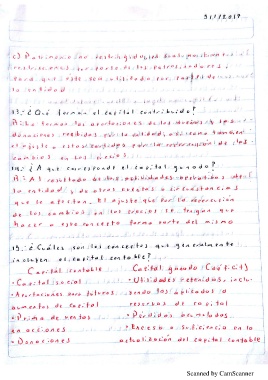 c) Patrimonio
que este sea utilizado por
la entidad
13. ¿Qué forma el capital contribuido?
R= Lo forman las aportaciones de los dueños y las
donaciones recibidas por la entidad, así como también
el ajuste a estas partidas por la repercusión de los
cambios en los precios.
14. ¿A que corresponde el capital ganado?
R= Al resultado de las actividades operativas de
la entidad y de otros eventos o circunstancias
que le afectan. El ajuste que por la repercusión
de los cambios en los precios se tengan que
hacer a este concepto forma parte del mismo
15. ¿Cuáles son los conceptos que generalmente
incluyen el capital contable?
Capital contable Capital ganado (
• Capital social • Utilidades retenidas, inclu-
• Aportaciones para futuros yendo las aplicadas a
aumentos de capital reservas de capital
• Prima de ventas • Pérdidas acumuladas
en acciones • Exceso o insuficiencia en la
• Donaciones actualización del capital contable
Scanned by CamScanner